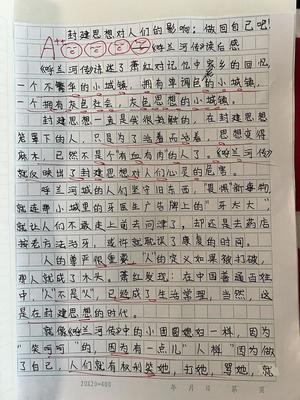 封建思想对人们的影响：做回自己吧！
A++ 《呼兰河传》读后感
《呼兰河传》讲述了萧红对记忆中家乡的回忆，
一个不繁华的小城镇，拥有单调色的小城镇，
一个拥有灰色社会，灰色思想的小城镇。
封建思想一直是我很抵触的，在封建思想
笼罩下的人，只是为了活着而活着，思想变得
麻木，已然不是个“有血有肉”的人了。《呼兰河传》
就反映出了封建思想对人们心灵的危害。
呼兰河城的人们坚守旧东西，畏惧新事物，
就连那小城里的牙医生广告牌上的“牙太大”，
就让人们不敢走上前去问津了，却还是去药店
按老方法治牙，或许就耽误了康复的时间。
人的尊严很重要，“人”的定义如果被打破，
那人就成了木头。萧红发现：在中国普通百姓
中，“人”不是“人”，已经成了生活常理，当然，这
是在封建思想的时代。
就像《呼兰河传》中的小团圆媳妇一样，因为
“笑呵呵”的，因为有一点儿“人样”因为做
了自己，人们就有权利笑她，打她，骂她，就
20X20=400
年 月 日 第 页